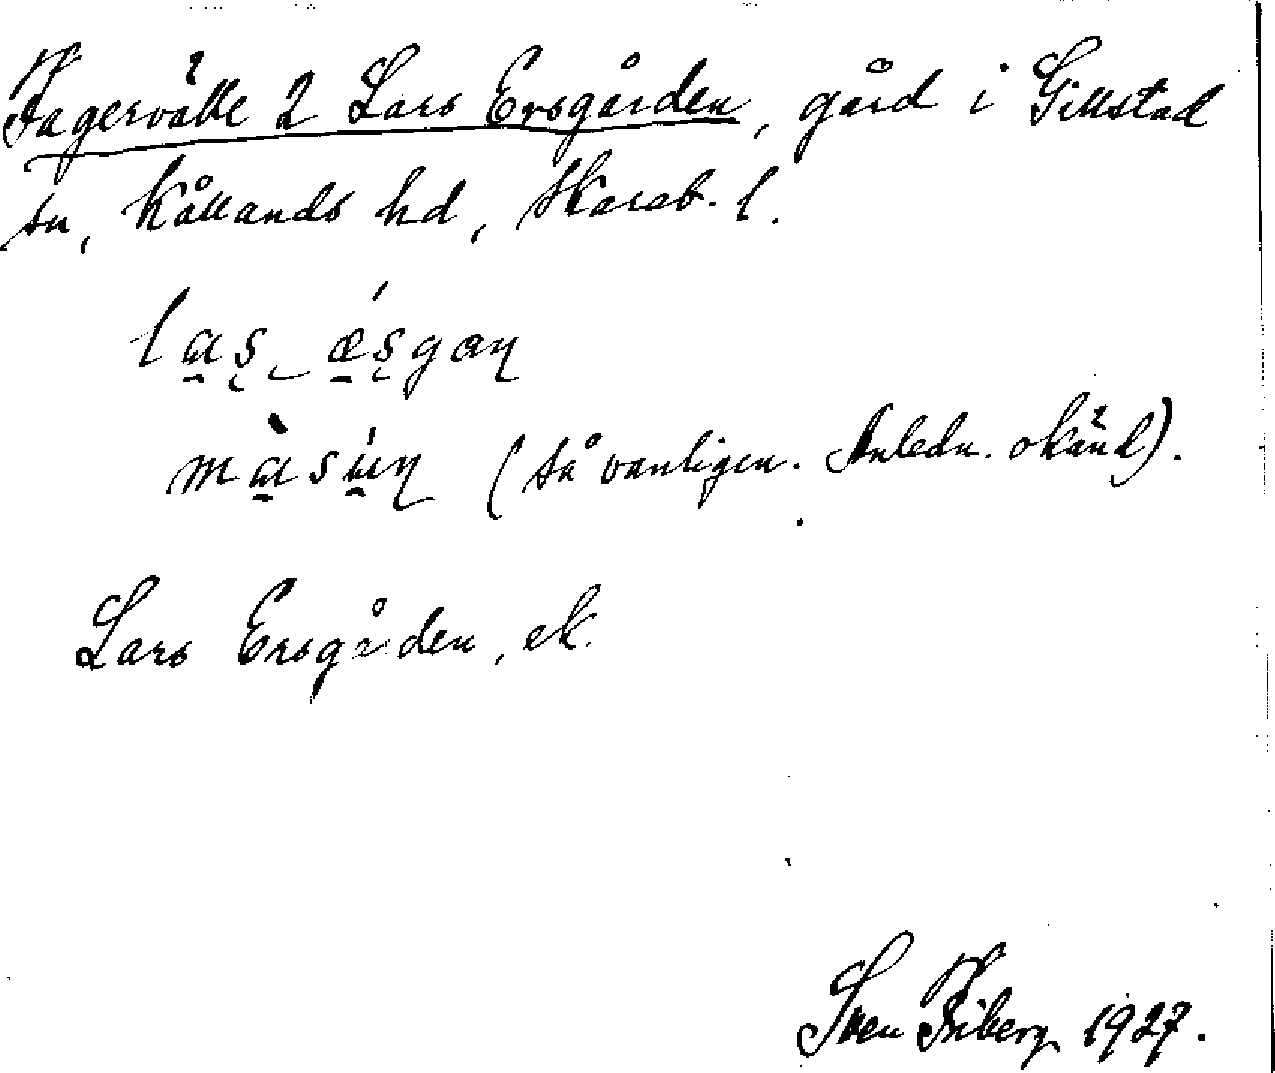 Fagervälle 2 Lars Ersgården, gård i Gillstad
sn, Kållands hd, Skarab. l.
las ǽsgaɳ
màsúɳ (så vanligen. Anledn. okänd).
Lars Ersgården, ek.
Sven Friberg 1927.